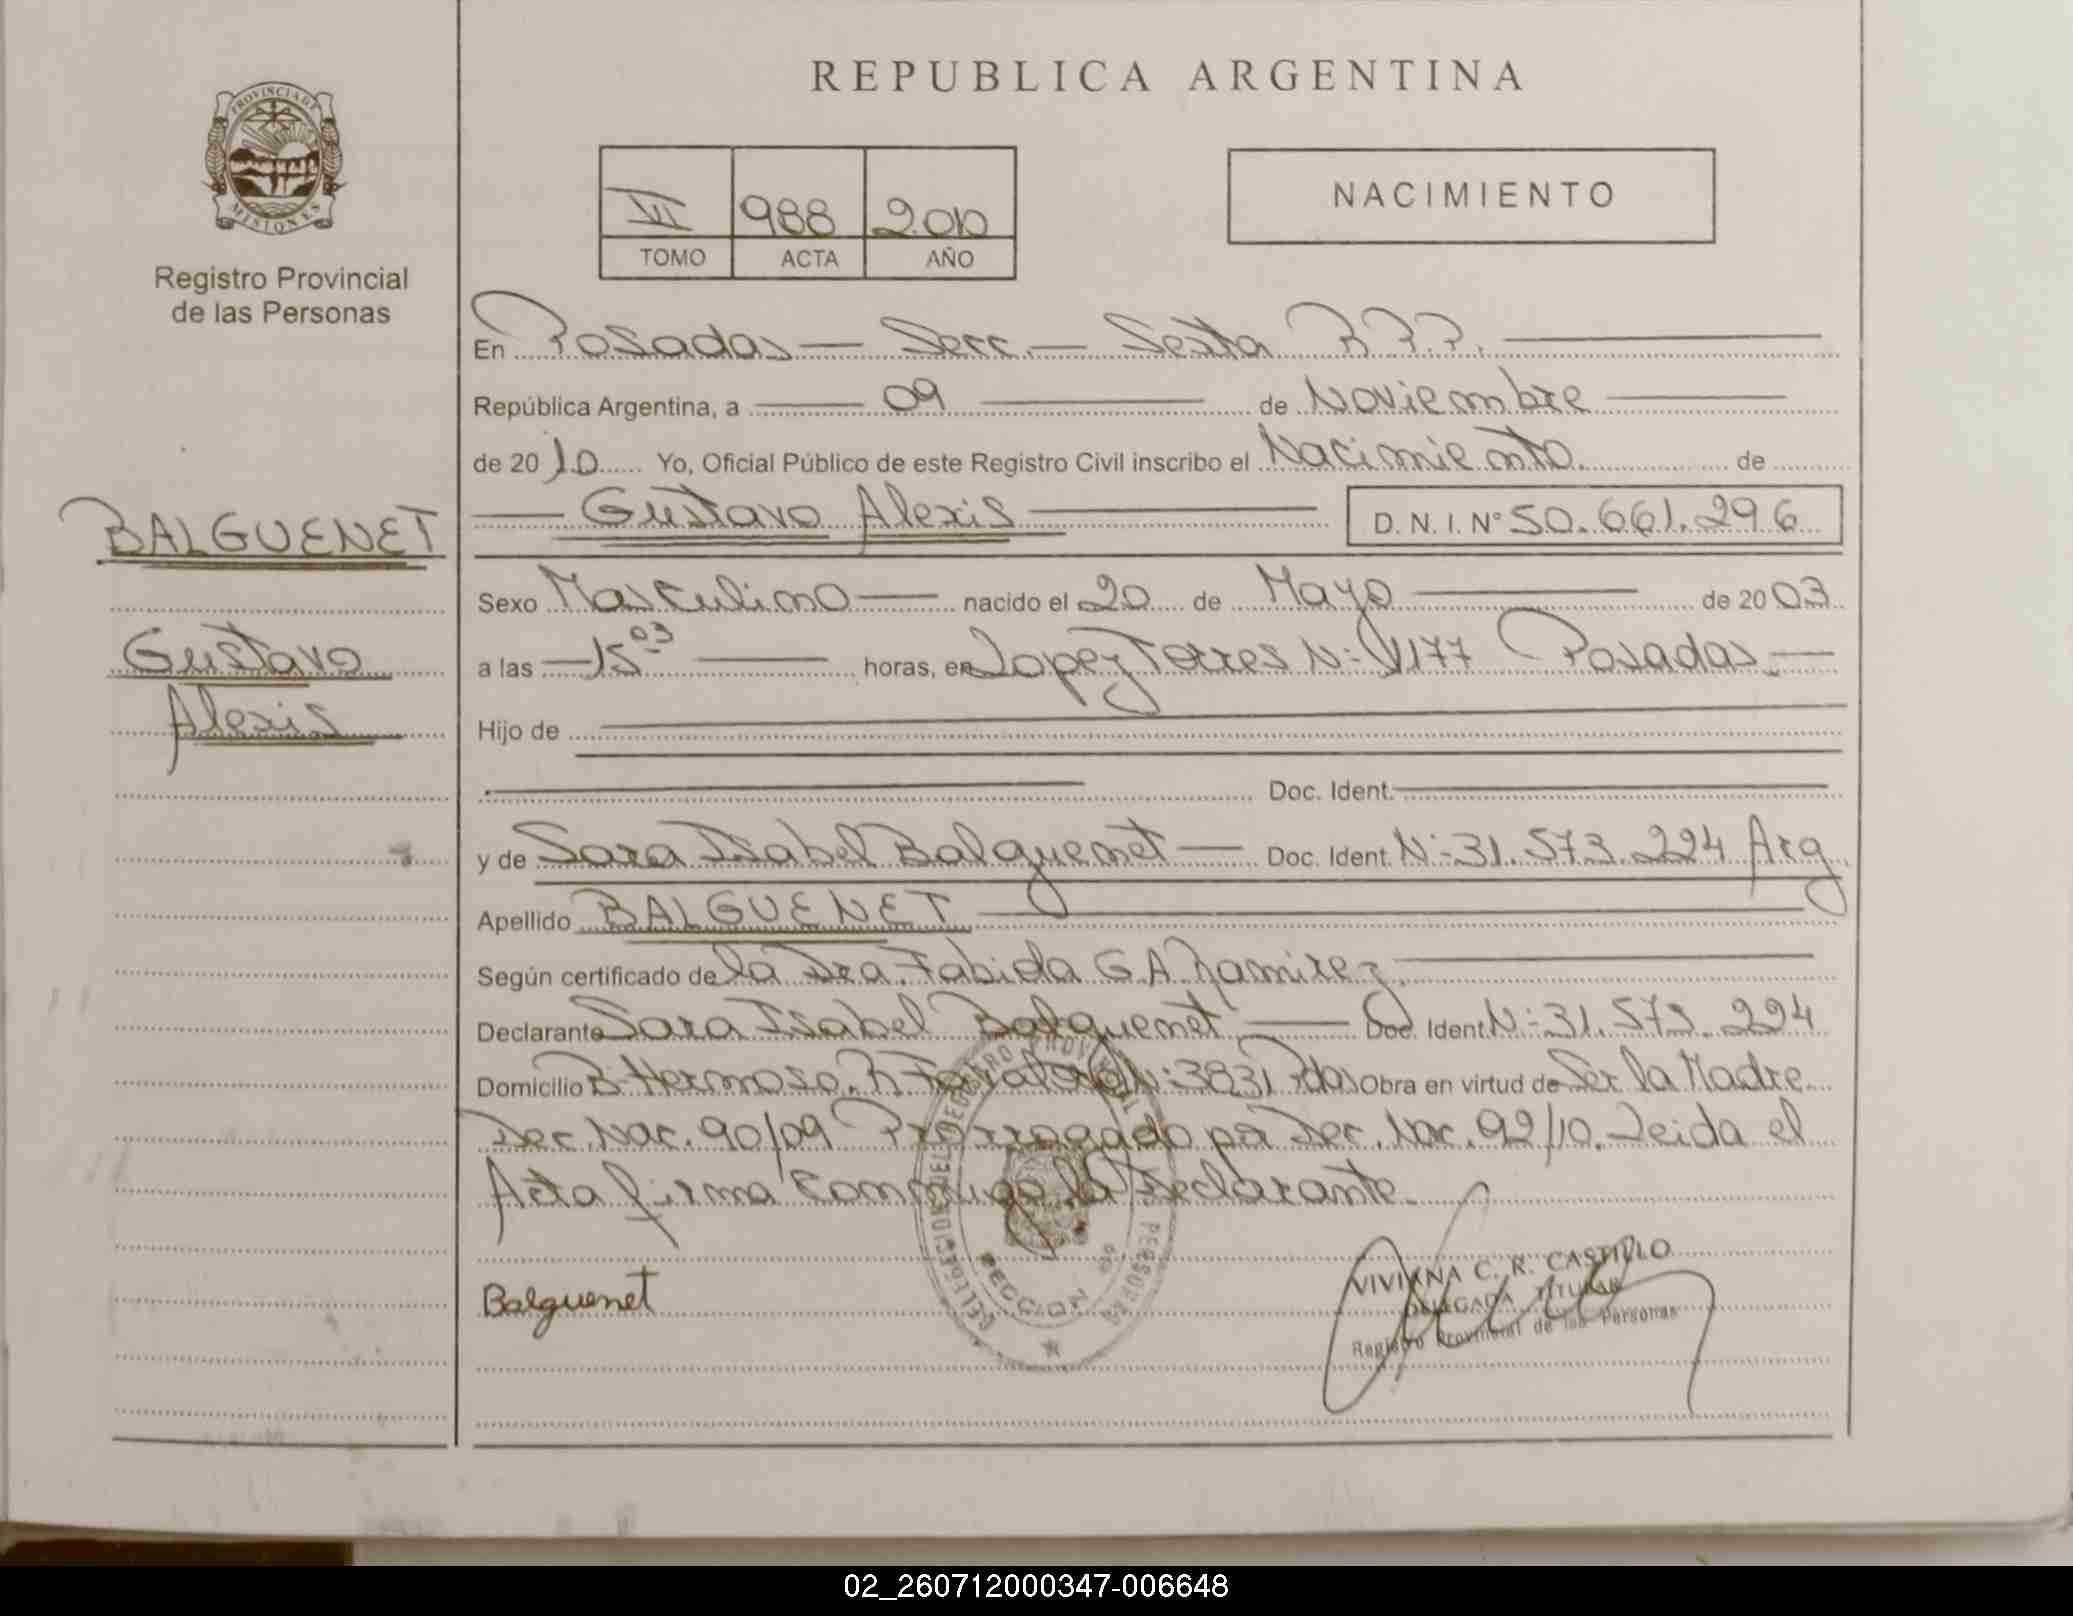 PROVINCIA DE
MISIONES
Registro Provincial
de las Personas
BALGUENET
Gustavo
Alexis
REPUBLICA ARGENTINA
VII 988 2010
TOMO ACTA AÑO
NACIMIENTO
En Posadas — Secc. — Sexta R.P.P.
República Argentina, a 09 de Noviembre
de 2010 Yo, Oficial Público de este Registro Civil inscribo el Nacimiento de
Gustavo Alexis D.N.I. N° 50.661.296
Sexo Masculino nacido el 20 de Mayo de 2003
a las 15 03 horas, en Lopez Torres N: 1177 Posadas.
Hijo de
Doc. Ident.
y de Sara Isabel Balguenet Doc. Ident. N: 31.573.224 Arg
Apellido BALGUENET
Según certificado de la Dra. Fabiola G.A. Ramirez
Declarante Sara Isabel Balguenet Doc. Ident. N: 31.573.224
Domicilio B. Hermoso. R. N: 3831 Pdas Obra en virtud de Ser la Madre
Dec. Nac. 90/09 Prorrogado por Dec. Nac. 92/10. Leida el
Acta firma conmigo la Declarante.
Balguenet
SECCION
VIVIANA C. R. CASTILLO
DELEGADA TITULAR
Registro Provincial de las Personas
02_260712000347-006648